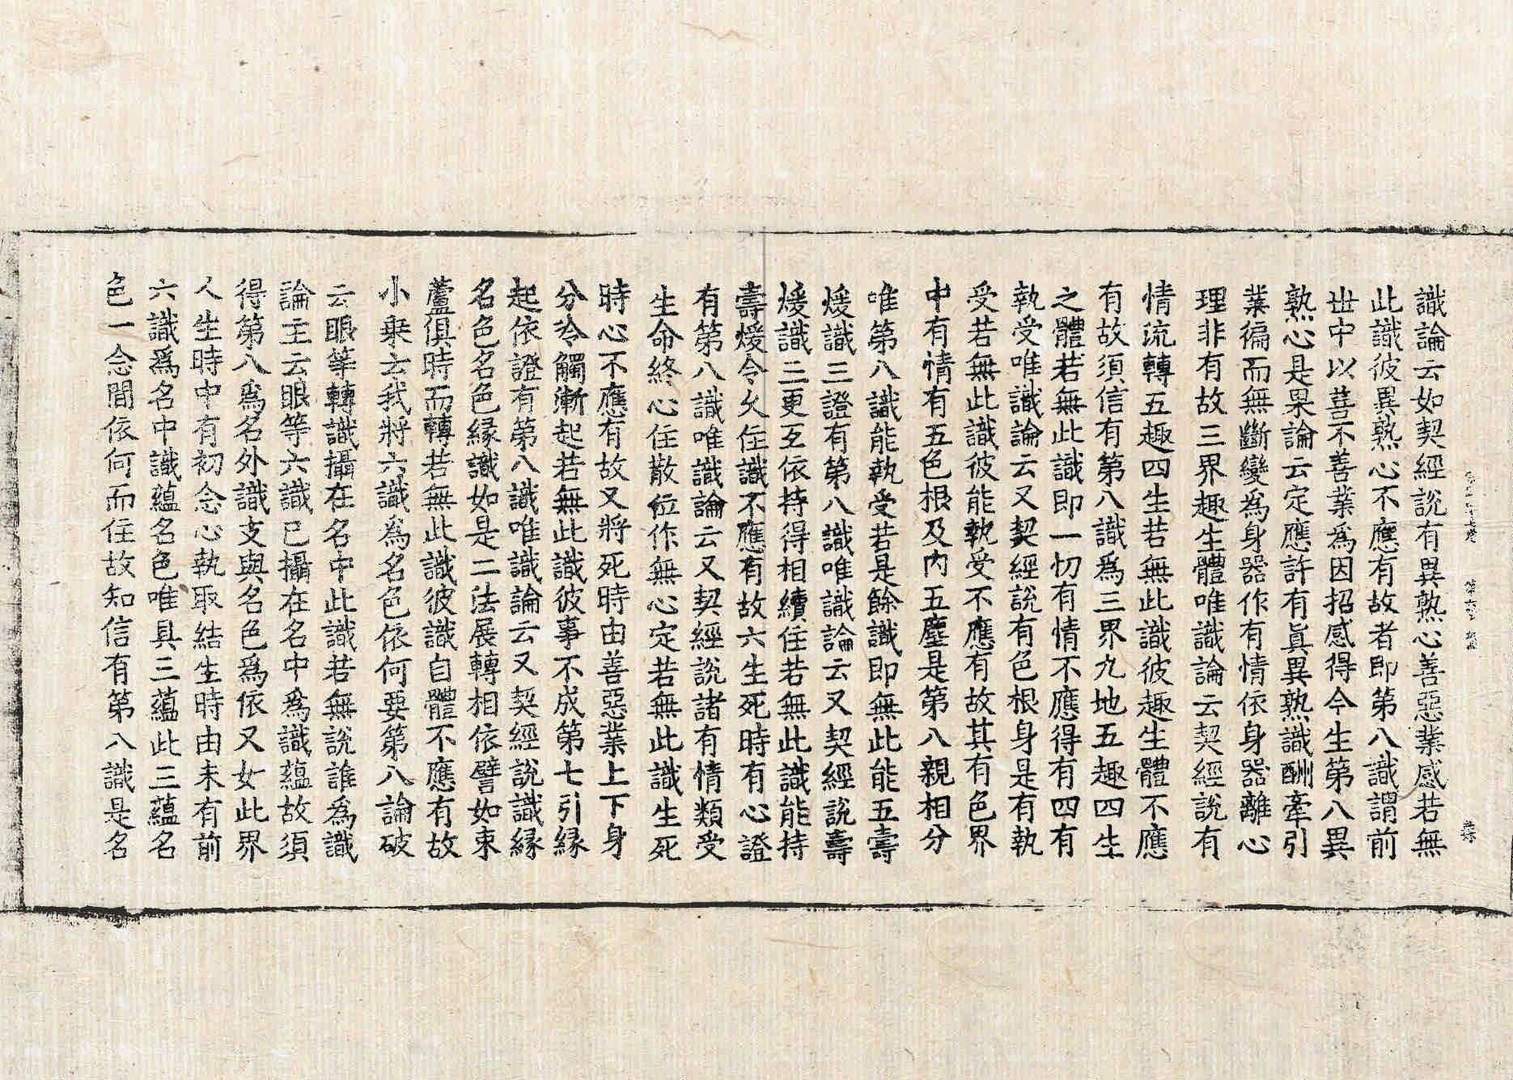 識論云如契經說有異熟心善惡業感若無
此識彼異熟心不應有故者即第八識謂前
世中以善不善業爲因招感得今生第八異
熟心是果論云定應許有眞異熟識酬牽引
業徧而無斷變爲身器作有情依身器離心
理非有故三界趣生體唯識論云契經說有
情流轉五趣四生若無此識彼趣生體不應
有故須信有第八識爲三界九地五趣四生
之體若無此識即一切有情不應得有四有
執受唯識論云又契經說有色根身是有執
受若無此識彼能執受不應有故其有色界
中有情有五色根及內五塵是第八親相分
唯第八識能執受若是餘識即無此能五壽
煖識三證有第八識唯識論云又契經說壽
煖識三更互依持得相續住若無此識能持
壽煖令久住識不應有故六生死時有心證
有第八識唯識論云又契經說諸有情類受
生命終心住散位非無心定若無此識生死
時心不應有故又將死時由善惡業上下身
分冷觸漸起若無此識彼事不成第七引緣
起依證有第八識唯識論云又契經說識緣
名色名色緣識如是二法展轉相依譬如束
蘆俱時而轉若無此識彼識自體不應有故
小乘云我將六識爲名色依何要第八論破
云眼等轉識攝在名中此識若無說誰爲識
論主云眼等六識已攝在名中爲識蘊故須
得第八爲名外識支與名色爲依又如此界
人生時中有初念心執取結生時由未有前
六識爲名中識蘊名色唯具三蘊此三蘊名
色一念間依何而住故知信有第八識是名